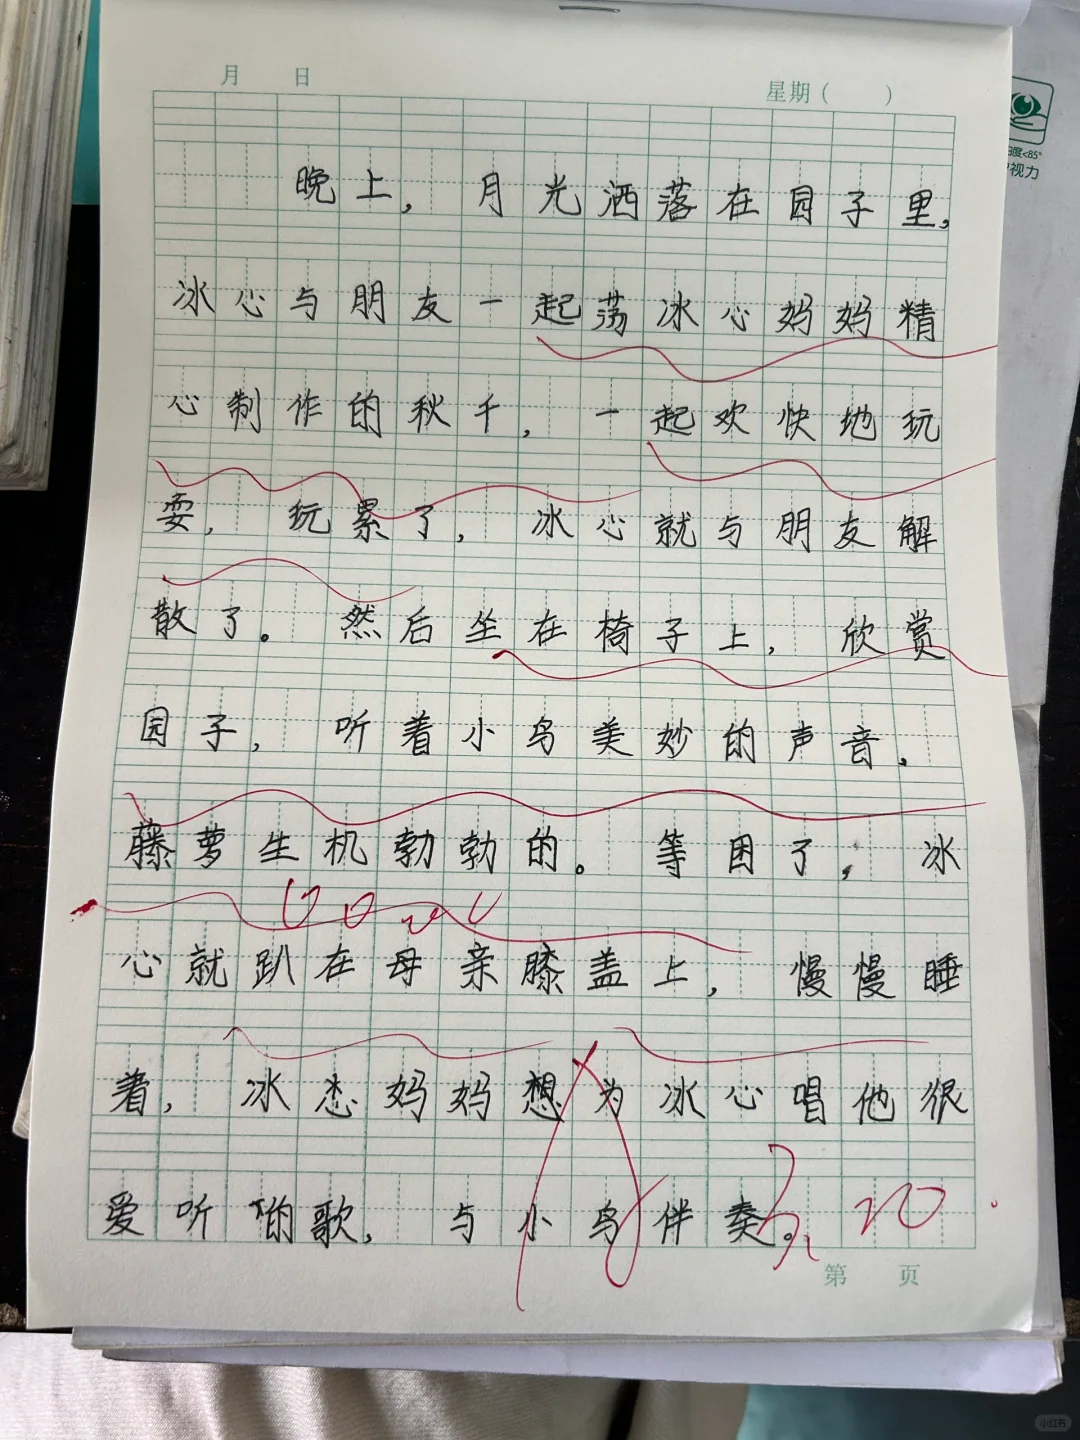 月 日 星期( )
晚上，月光洒落在园子里，
冰心与朋友一起荡冰心妈妈精
心制作的秋千，一起欢快地玩
耍，玩累了，冰心就与朋友解
散了。然后坐在椅子上，欣赏
园子，听着小鸟美妙的声音，
藤萝生机勃勃的。等困了，冰
心就趴在母亲膝盖上，慢慢睡
着，冰 妈妈想为冰心唱他很
爱听的歌，与小鸟伴奏。
第 页
小红书